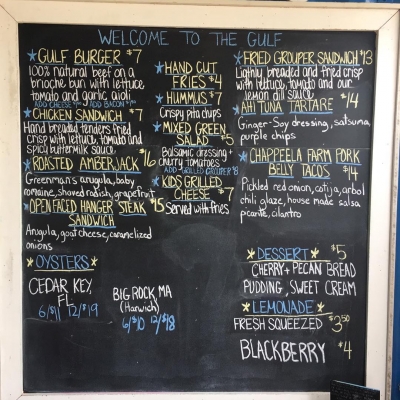 WELCOME TO THE GULF
GULF BURGER $7
100% natural beef on a
brioche bun with lettuce
tomato and garlic aioli
ADD CHEESE ADD BACON
CHICKEN SANDWICH $7
Hand breaded tenders fried
crisp with lettuce, tomato and
spicy buttermilk sauce
ROASTED AMBERJACK $16
Greenman's arugula, baby
romaine, shaved radish, grapefruit
OPEN FACED HANGER STEAK $15
SANDWICH
Arugula, goat cheese, caramelized
onions
OYSTERS
CEDAR KEY,
FL
6/$11 12/$19
BIG ROCK, MA
(Harwich)
6/$10 12/$18
HAND CUT
FRIES $4
HUMMUS $7
Crispy pita chips
MIXED GREEN
SALAD $5
Balsamic dressing +
cherry tomatoes
ADD GRILLED GROUPER $8
KIDS GRILLED
CHEESE $7
Served with fries
FRIED GROUPER SANDWICH $13
Lightly breaded and fried crisp
with lettuce, tomato and our
lemon dill sauce
AHI TUNA TARTARE $14
Ginger-Soy dressing, satsuma,
purple chips
CHAPPEELA FARM PORK
BELLY TACOS $14
Pickled red onion, cotija, arbol
chili glaze, house made salsa
picante, cilantro
DESSERT $5
CHERRY + PECAN BREAD
PUDDING, SWEET CREAM
LEMONADE
FRESH SQUEEZED $3.50
BLACKBERRY $4